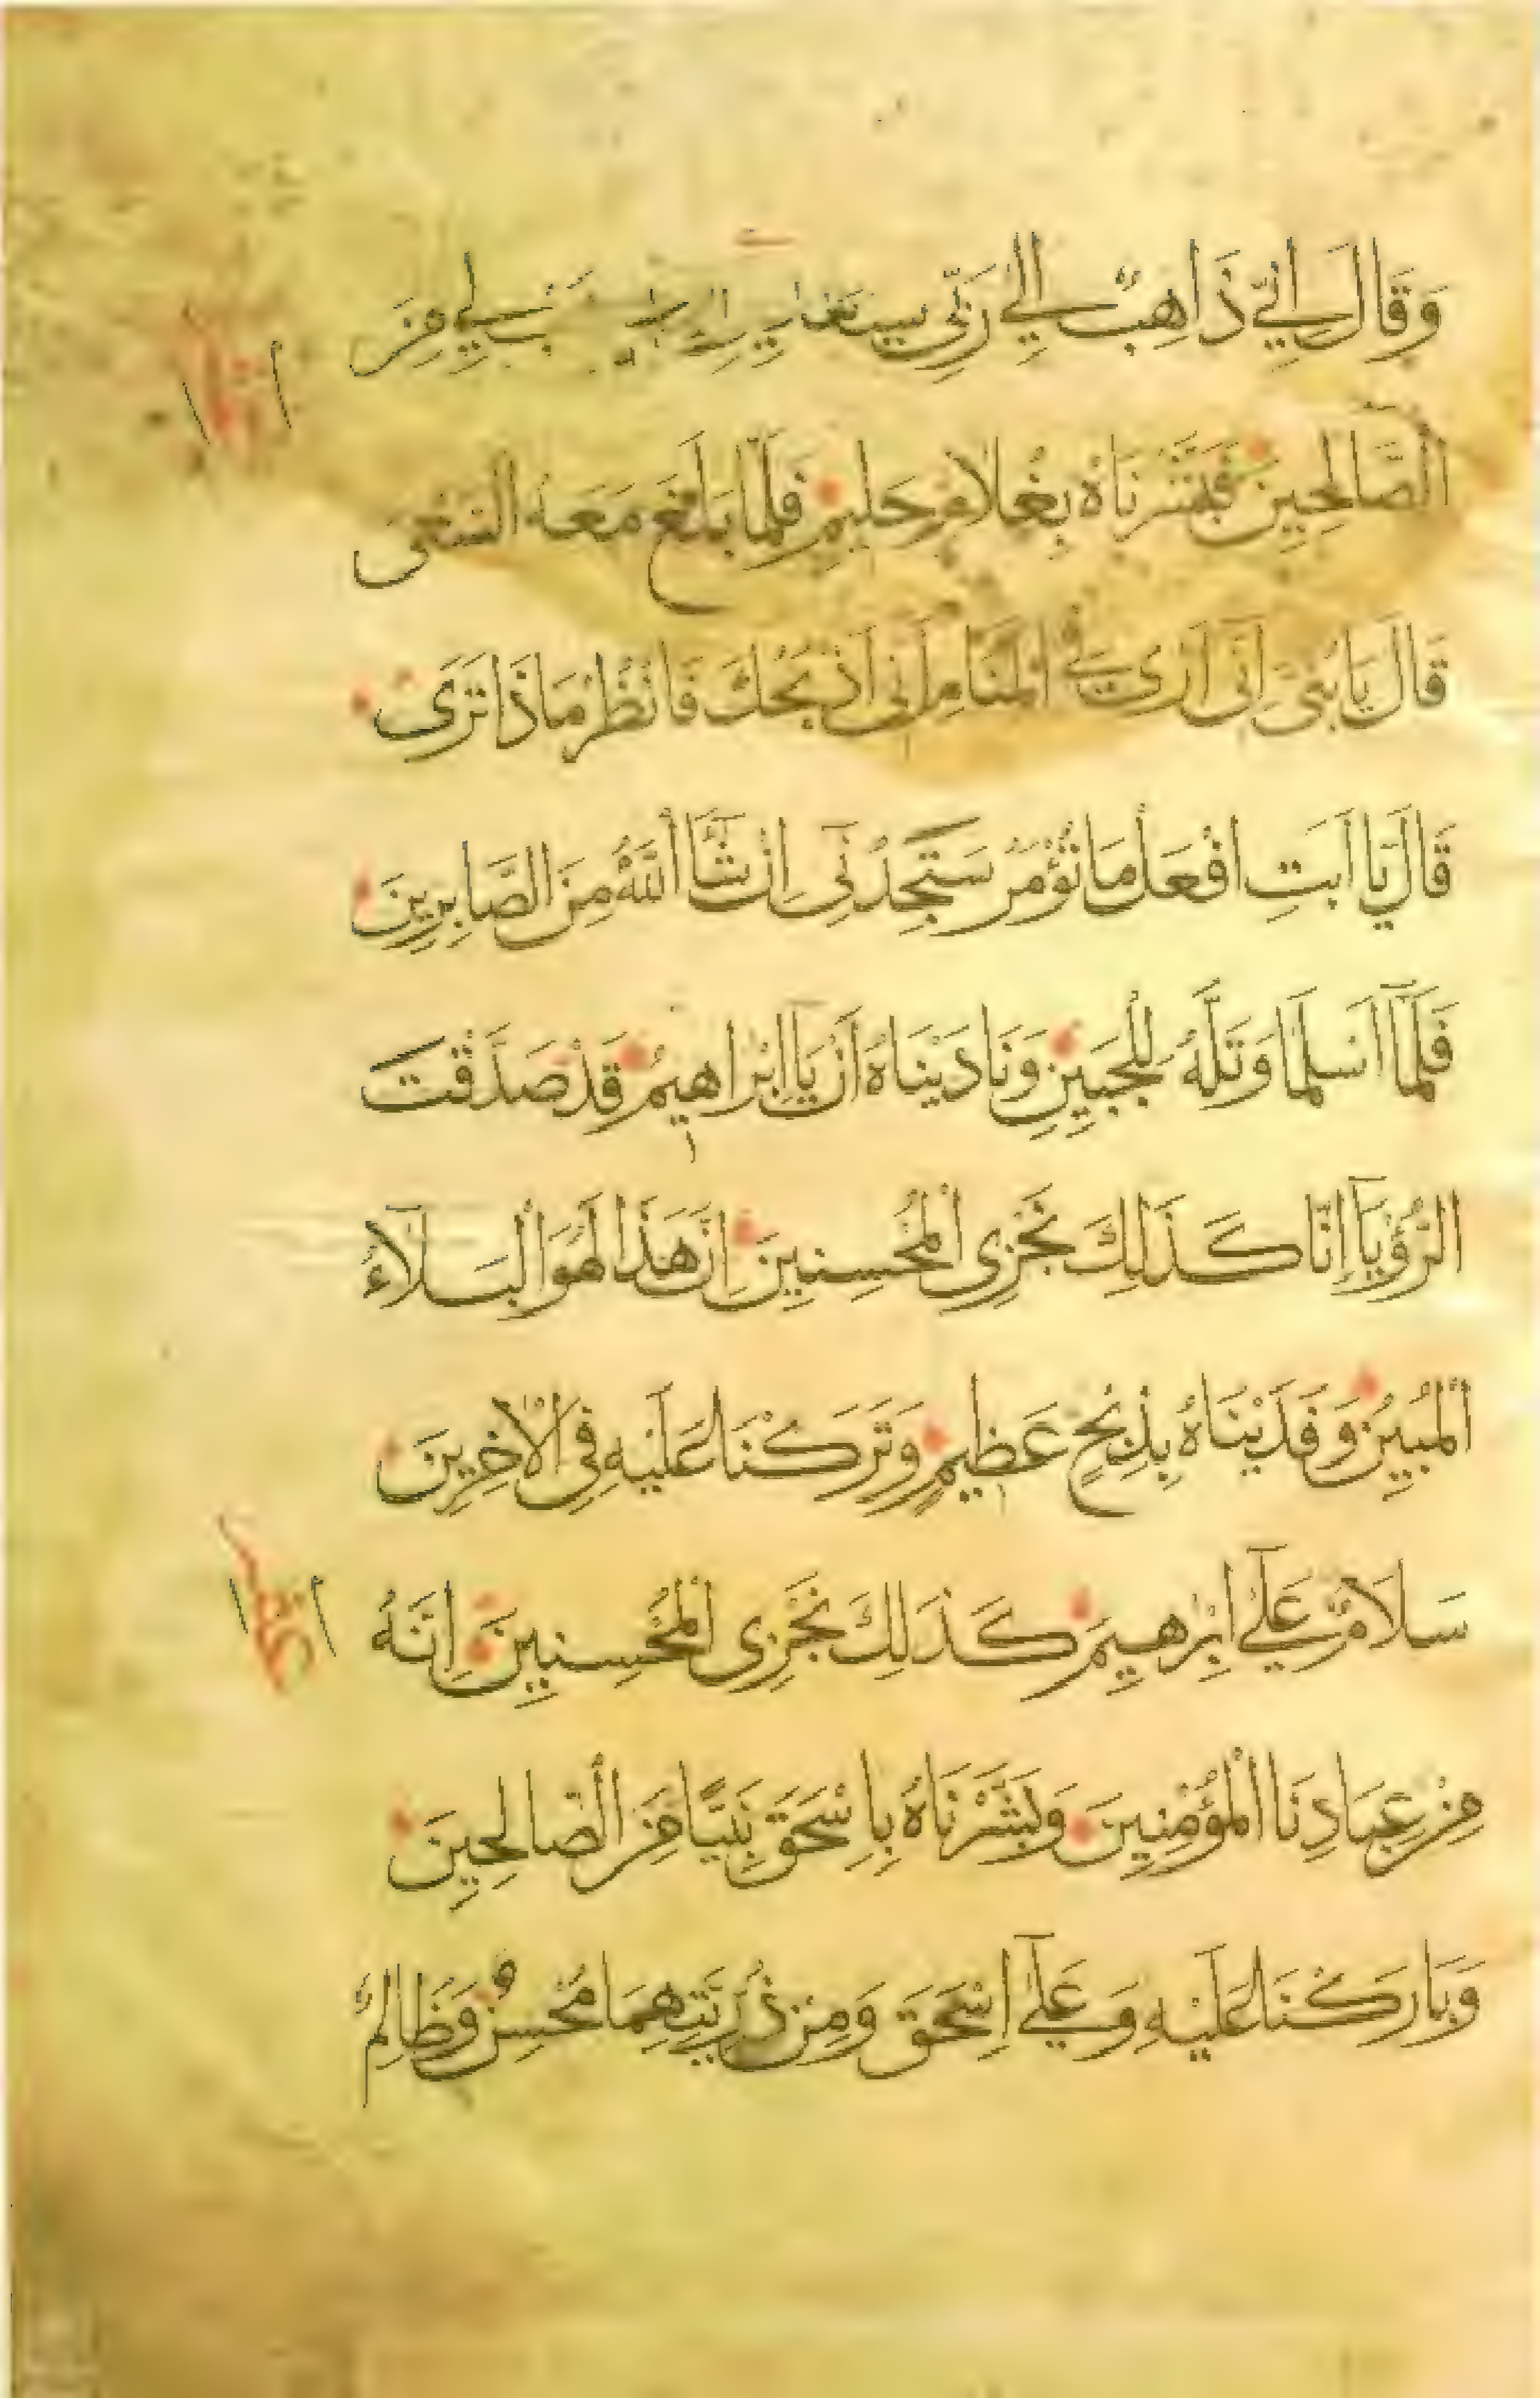 وَقَالَ اِنِّي ذَاهِبٌ اِلٰي رَبِّي سيهديـن رب هب لِي مِنَ
الصَّالِحِينَ فَبَشَّرْنَاهُ بِغُلَامٍ حَلِيمٍ فَلَمَّا بَلَغَ مَعَهُ السَّعْىَ
قَالَ يَا بُنَىَّ اِنِّى اَرٰى فِي الْمَنَامِ اَنِّى اَذْبَحُكَ فَانْظُرْ مَاذَا تَرٰى
قَالَ يَا اَبَتِ افْعَلْ مَا تُؤْمَرُ سَتَجِدُنِى اِنْ شَآ اللّٰهُ مِنَ الصَّابِرِينَ
فَلَمَّآ اَسْلَمَا وَتَلَّهُ لِلْجَبِينِ وَنَادَيْنَاهُ اَنْ يَآ اِبْرَاهِيمُ قَدْ صَدَّقْتَ
الرُّؤْيَآ اِنَّا كَذَلِكَ نَجْزِى الْمُحْسِنِينَ اِنَّ هَذَا لَهُوَ الْبَلَآءُ
الْمُبِينُ وَفَدَيْنَاهُ بِذِبْحٍ عَظِيمٍ وَتَرَكْنَا عَلَيْهِ فِى الْاٰخِرِينَ
سَلَامٌ عَلٰٓي اِبْرٰهِيمَ كَذَلِكَ نَجْزِى الْمُحْسِنِينَ اِنَّهُ
مِنْ عِبَادِنَا الْمُؤْمِنِينَ وَبَشَّرْنَاهُ بِاِسْحٰقَ نَبِيًّا مِنَ الصَّالِحِينَ
وَبَارَكْنَا عَلَيْهِ وَعَلٰٓي اِسْحٰقَ وَمِنْ ذُرِّيَّتِهِمَا مُحْسِنٌ وَظَالِمٌ